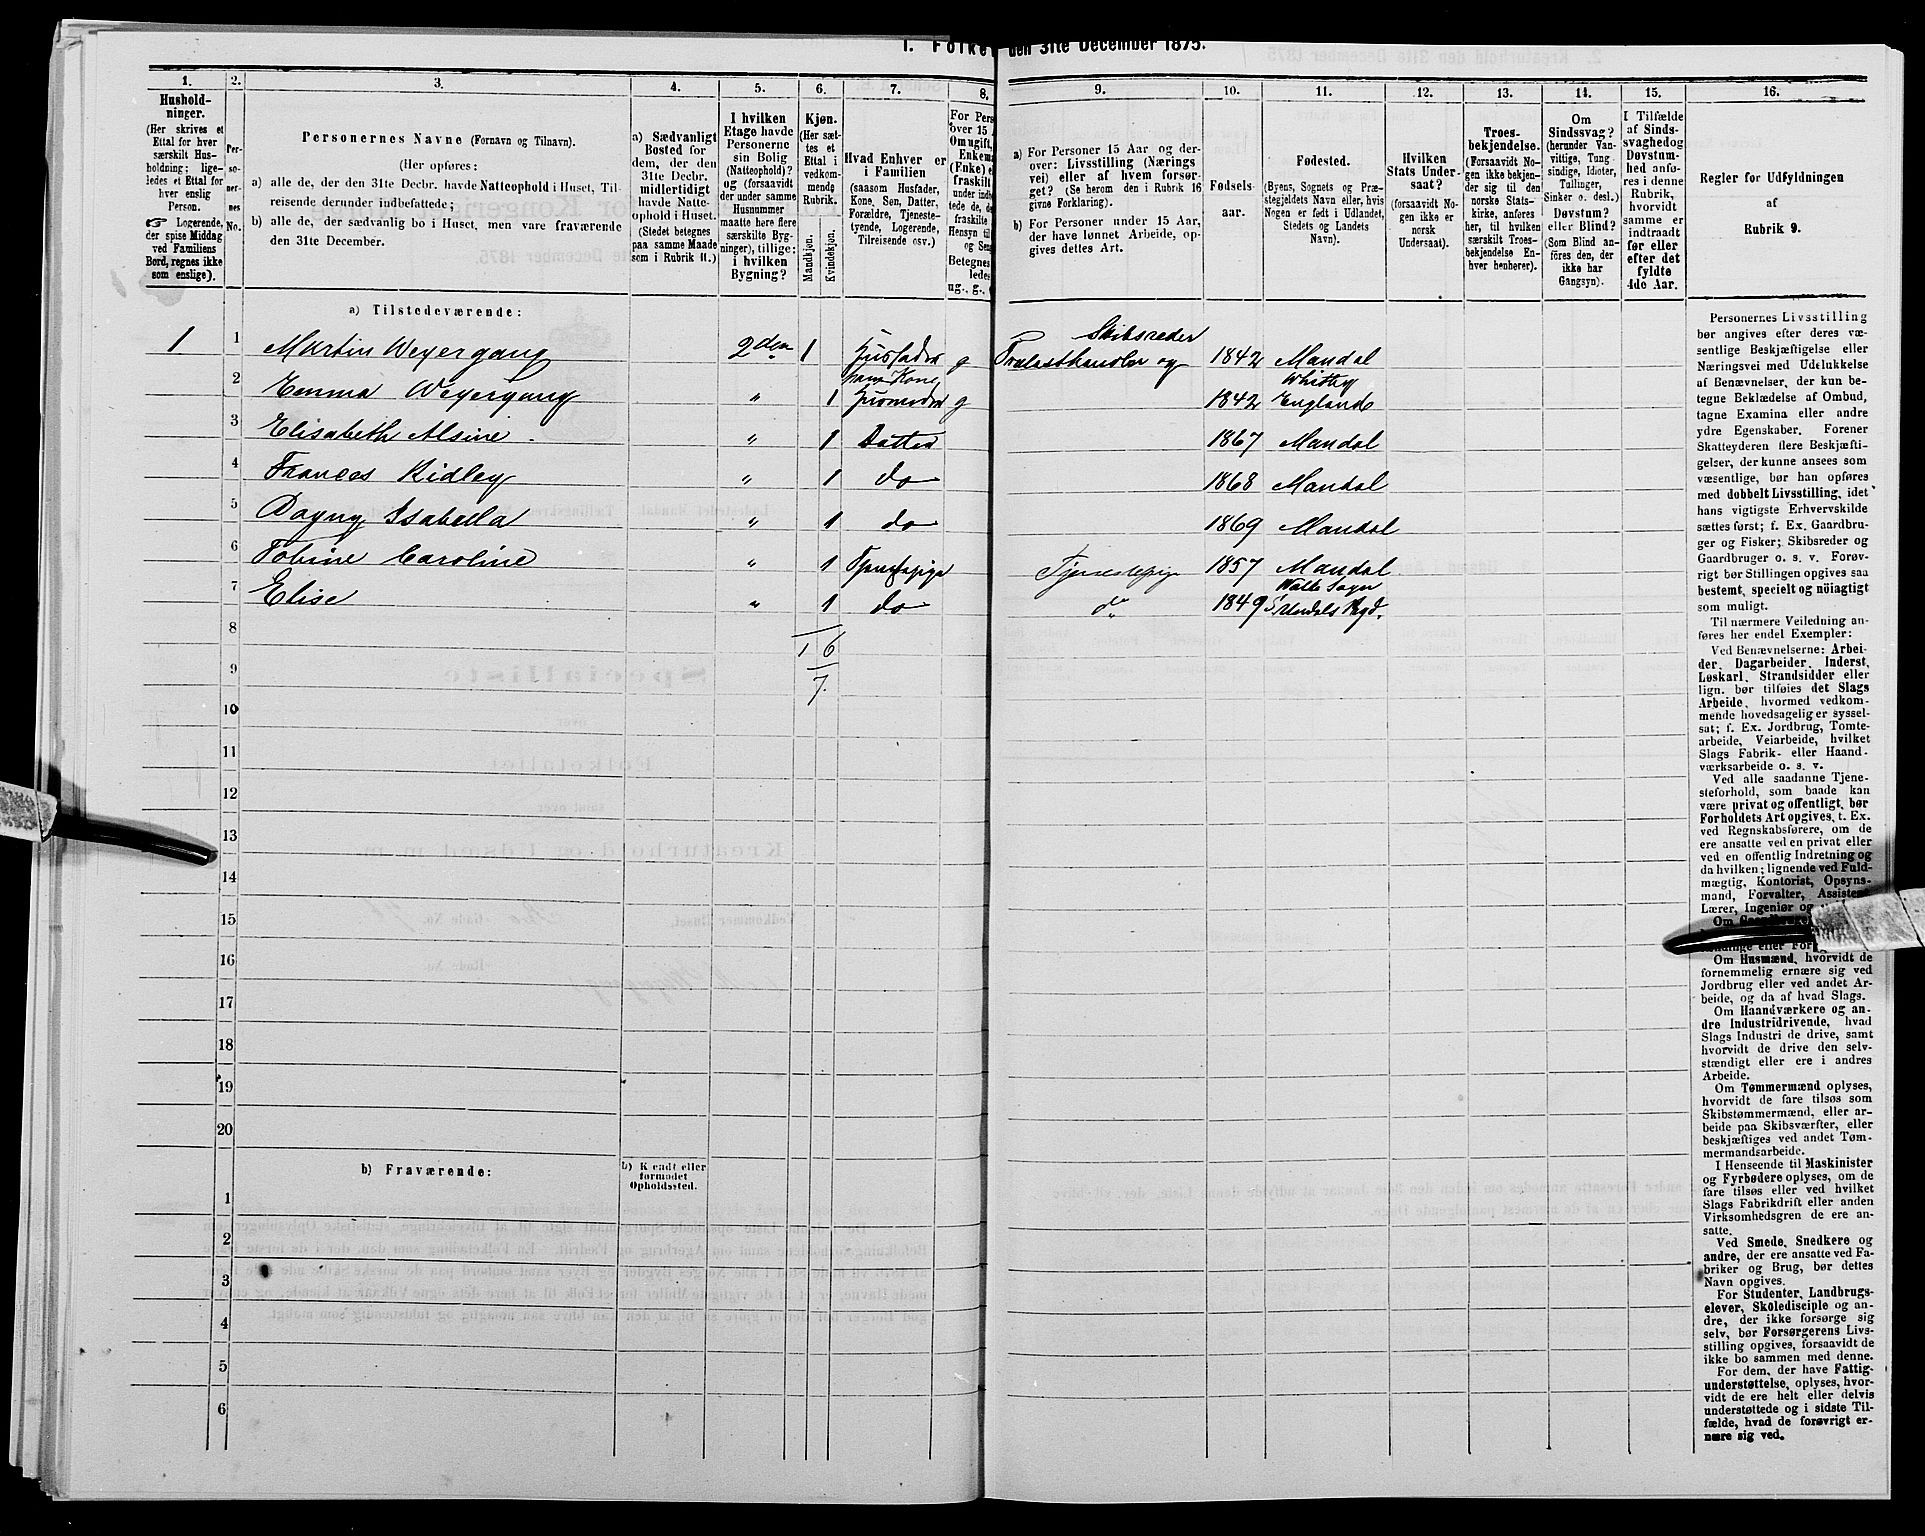 1. Folke den 31te December 1875.
1. 2. 3. 4. 5. 6. 7. 8. 9. 10. 11. 12. 13. 14. 15. 16.
Hushold-
ninger.
(Her skrives et
Ettal for hver
særskilt Hus-
holdning; lige-
ledes et Ettal for
hver enslig
Person.
☞ Logerende,
der spise Middag
ved Familiens
Bord, regnes ikke
som enslige).
Per-
so-
ner-
nes
No.
Personernes Navne (Fornavn og Tilnavn).
(Her opføres:
a) alle de, der den 31te Decbr. havde Natteophold i Huset, Til-
reisende derunder indbefattede;
b) alle de, der sædvanlig bo i Huset, men vare fraværende
den 31te December.
a) Sædvanligt
Bosted for
dem, der den
31te Decbr.
midlertidigt
havde Natte-
ophold i Huset.
(Stedet betegnes
paa samme Maade
som i Rubrik 11.)
I hvilken
Etage havde
Personerne
sin Bolig
(Natteophold)?
og (forsaavidt
der under samme
Husnummer
maatte høre flere
særskilte Byg-
ninger), tillige:
i hvilken
Bygning?
Kjøn.
(Her sæt-
tes et
Ettal i
vedkom-
mende
Rubrik.
Mandkjøn.
Kvindekjøn.
Hvad Enhver er
i Familien
(saasom Husfader,
Kone, Søn, Datter,
Forældre, Tjeneste-
tyende, Logerende,
Tilreisende osv.)
For Pers
over 15 A
Om ugift,
Enkema
(Enke) e
fraskilt
under indb
tede de, d
fraskilte
Hensyn til
og Sen
Betegnes
ledes
ug., g.,
a) For Personer 15 Aar og der-
over: Livsstilling (Nærings
vei) eller af hvem forsør-
get? (Se herom den i Rubrik 16
givne Forklaring).
b) For Personer under 15 Aar,
der have lønnet Arbeide, op-
gives dettes Art.
Fødsels-
aar.
Fødested.
(Byens, Sognets og Præ-
stegjeldets Navn eller, hvis
Nogen er født i Udlandet,
Stedets og Landets
Navn).
Hvilken
Stats Under-
saat?
(forsaavidt No-
gen ikke er
norsk
Undersaat).
Troes-
bekjendelse.
(Forsaavidt No-
gen ikke bekjen-
der sig til den
norske Stats-
kirke, anføres
her, til hvilken
særskilt Troes-
bekjendelse En-
hver henhører).
Om
Sindssvag?
(herunder Van-
vittige, Tung-
sindige, Idioter,
Tullinger,
Sinker o. desl.)
Døvstum?
eller Blind?
(Som Blind an-
føres den, der
ikke har
Gangsyn).
I Tilfælde
af Sinds-
svaghed og
Døvstum-
hed anfø-
res i denne
Rubrik,
hvorvidt
samme er
indtraadt
før eller
efter det
fyldte
4de Aar.
Regler for Udfyldningen
af
Rubrik 9.
a) Tilstedeværende:
1 1 Martin Weyergang 2den 1 Husfader g Trælasthandler og Skibsreder 1842 Mandal
2 Emma Weyergang " 1 hans Kone Husmoder g 1842 Whitby England
3 Elisabeth Alsine. " 1 Datter 1867 Mandal
4 Frances Ridley " 1 do 1868 Mandal
5 Dagny Isabella " 1 do 1869 Mandal
6 Tobine Caroline " 1 Tjenestepige Tjenestepige 1857 Mandal
7 Elise " 1 do do 1849 Sogn
8
1 6
9
7.
10
11
12
13
14
15
16
17
18
19
20
b) Fraværende:
b) Kjendt eller
formodet
Opholdssted.
1
2
3
4
5
6
Personernes Livsstilling
bør angives efter deres væ-
sentlige Beskjæftigelse eller
Næringsvei med Udelukkelse
af Benævnelser, der kun be-
tegne Beklædelse af Ombud,
tagne Examina eller andre
ydre Egenskaber. Forener
Skatteyderen flere Beskjæfti-
gelser, der kunne ansees som
væsentlige, bør han opføres
med dobbelt Livsstilling, idet
hans vigtigste Erhvervskilde
sættes først; f. Ex. Gaardbru-
ger og Fisker; Skibsreder og
Gaardbruger o. s. v. Forøv-
rigt bør Stillingen opgives saa
bestemt, specielt og nöiagtigt
som muligt.
Til nærmere Veiledning an-
føres her endel Exempler:
Ved Benævnelserne: Arbei-
der, Dagarbeider, Inderst,
Løskarl, Strandsidder eller
lign. bør tilføies det Slags
Arbeide, hvormed vedkom-
mende hovedsagelig er syssel-
sat; f. Ex. Jordbrug, Tomte-
arbeide, Veiarbeide, hvilket
Slags Fabrik- eller Haand-
værksarbeide o. s. v.
Ved alle saadanne Tjene-
steforhold, som baade kan
være privat og offentligt, bør
Forholdets Art opgives, t. Ex.
ved Regnskabsførere, om de
ere ansatte ved en privat eller
ved en offentlig Indretning og
da hvilken; lignende ved Fuld-
mægtig, Kontorist, Opsyns-
mand, Forvalter, Assistent,
Lærer, Ingeniør og
Om
eller For
Om Husmænd, hvorvidt de
fornemmelig ernære sig ved
Jordbrug eller ved andet Ar-
beide, og da af hvad Slags.
Om Haandværkere og an-
dre Industridrivende, hvad
Slags Industri de drive, samt
hvorvidt de drive den selv-
stændigt eller ere i andres
Arbeide.
Om Tømmermænd oplyses,
hvorvidt de fare tilsøs som
Skibstømmermænd, eller ar-
beide paa Skibsværfter, eller
beskjæftiges ved andet Tøm-
mermandsarbeide.
I Henseende til Maskinister
og Fyrbødere oplyses, om de
fare tilsøs eller ved hvilket
Slags Fabrikdrift eller anden
Virksomhedsgren de ere an-
satte.
Ved Smede, Snedkere og
andre, der ere ansatte ved Fa-
briker og Brug, bør dettes
Navn opgives.
For Studenter, Landbrugs-
elever, Skoledisciple og an-
dre, der ikke forsørge sig
selv, bør Forsørgerens Livs-
stilling opgives, forsaavidt de
ikke bo sammen med denne.
For dem, der have Fattig-
understøttelse, oplyses, hvor-
vidt de ere helt eller delvis
understøttede og i sidste Til-
fælde, hvad de forøvrigt er-
nære sig ved.